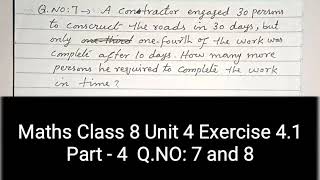 Q.NO:7 → A constractor engaged 30 persons
to conscruct the roads in 30 days, but
only one third one-fourth of the work was
complete after 10 days. How many more
persons he required to complete the work
in time?
Maths Class 8 Unit 4 Exercise 4.1
Part - 4 Q.NO: 7 and 8